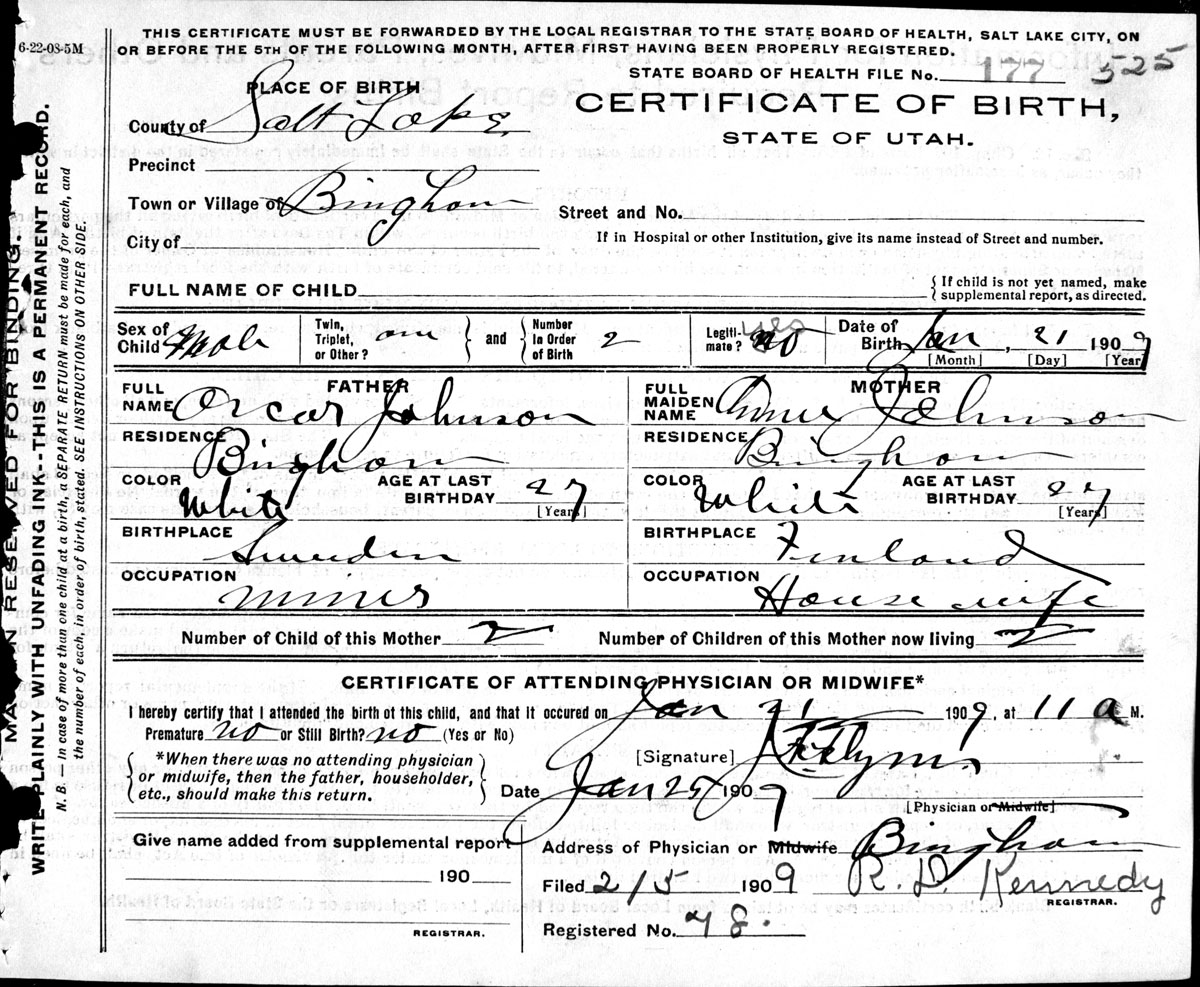 6-22-08-5M
THIS CERTIFICATE MUST BE FORWARDED BY THE LOCAL REGISTRAR TO THE STATE BOARD OF HEALTH, SALT LAKE CITY, ON
OR BEFORE THE 5TH OF THE FOLLOWING MONTH, AFTER FIRST HAVING BEEN PROPERLY REGISTERED.
STATE BOARD OF HEALTH FILE No. 177 525
PLACE OF BIRTH
CERTIFICATE OF BIRTH,
STATE OF UTAH.
County of Salt Lake
Precinct
Town or Village of Bingham
Street and No.
City of
If in Hospital or other Institution, give its name instead of Street and number.
FULL NAME OF CHILD
{If child is not yet named, make
supplemental report, as directed.
Sex of Child Male
Twin, Triplet, or Other? one } and { Number In Order of Birth 2
Legitimate? no yes
Date of Birth Jan, 21 1909
[Month] [Day] [Year]
FATHER
FULL NAME Oscar Johnson
MOTHER
FULL MAIDEN NAME Johnson
RESIDENCE Bingham
RESIDENCE Bingham
COLOR White AGE AT LAST BIRTHDAY 27 [Years]
COLOR White AGE AT LAST BIRTHDAY 27 [Years]
BIRTHPLACE Sweden
BIRTHPLACE Finland
OCCUPATION
OCCUPATION House wife
Number of Child of this Mother 2
Number of Children of this Mother now living 2
CERTIFICATE OF ATTENDING PHYSICIAN OR MIDWIFE*
I hereby certify that I attended the birth of this child, and that it occured on Jan 21 1909, at 11 a M.
Premature no or Still Birth? no (Yes or No)
{*When there was no attending physician
or midwife, then the father, householder,
etc., should make this return.}
[Signature]
Date Jan 1909
[Physician or Midwife]
Give name added from supplemental report
190
REGISTRAR.
Address of Physician or Midwife Bingham
Filed 2/5 1909 R. D. Kennedy
REGISTRAR.
Registered No. 48.
MARGIN RESERVED FOR BINDING.
WRITE PLAINLY WITH UNFADING INK--THIS IS A PERMANENT RECORD.
N.B.—In case of more than one child at a birth, a SEPARATE RETURN must be made for each, and
the number of each, in order of birth, stated. SEE INSTRUCTIONS ON OTHER SIDE.